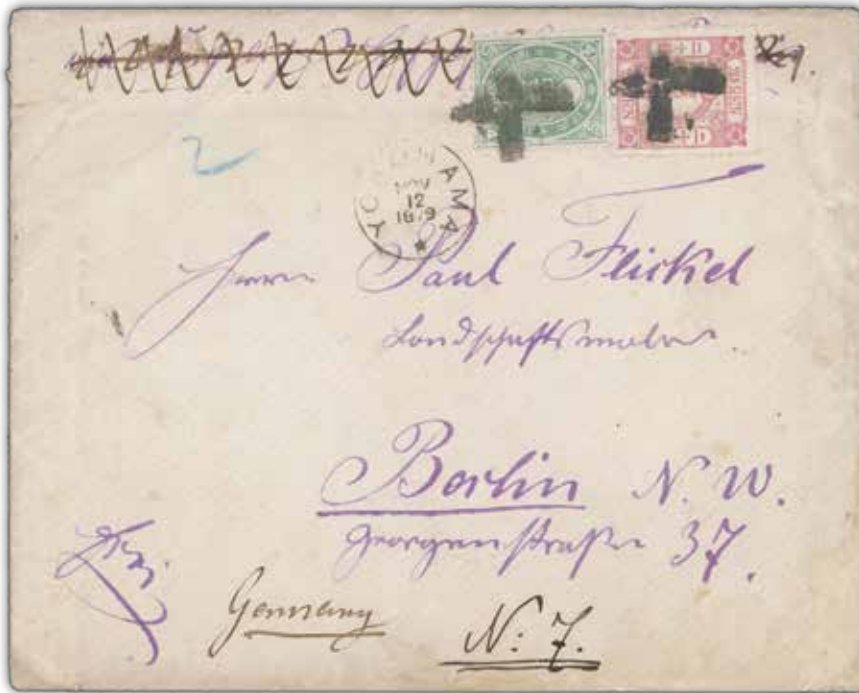 YOKOHAMA
NOV
12
1879
2
Herrn Paul Flickel
Landschaftsmaler.
Berlin N. W.
Georgenstraße 37.
Germany
N: 7.